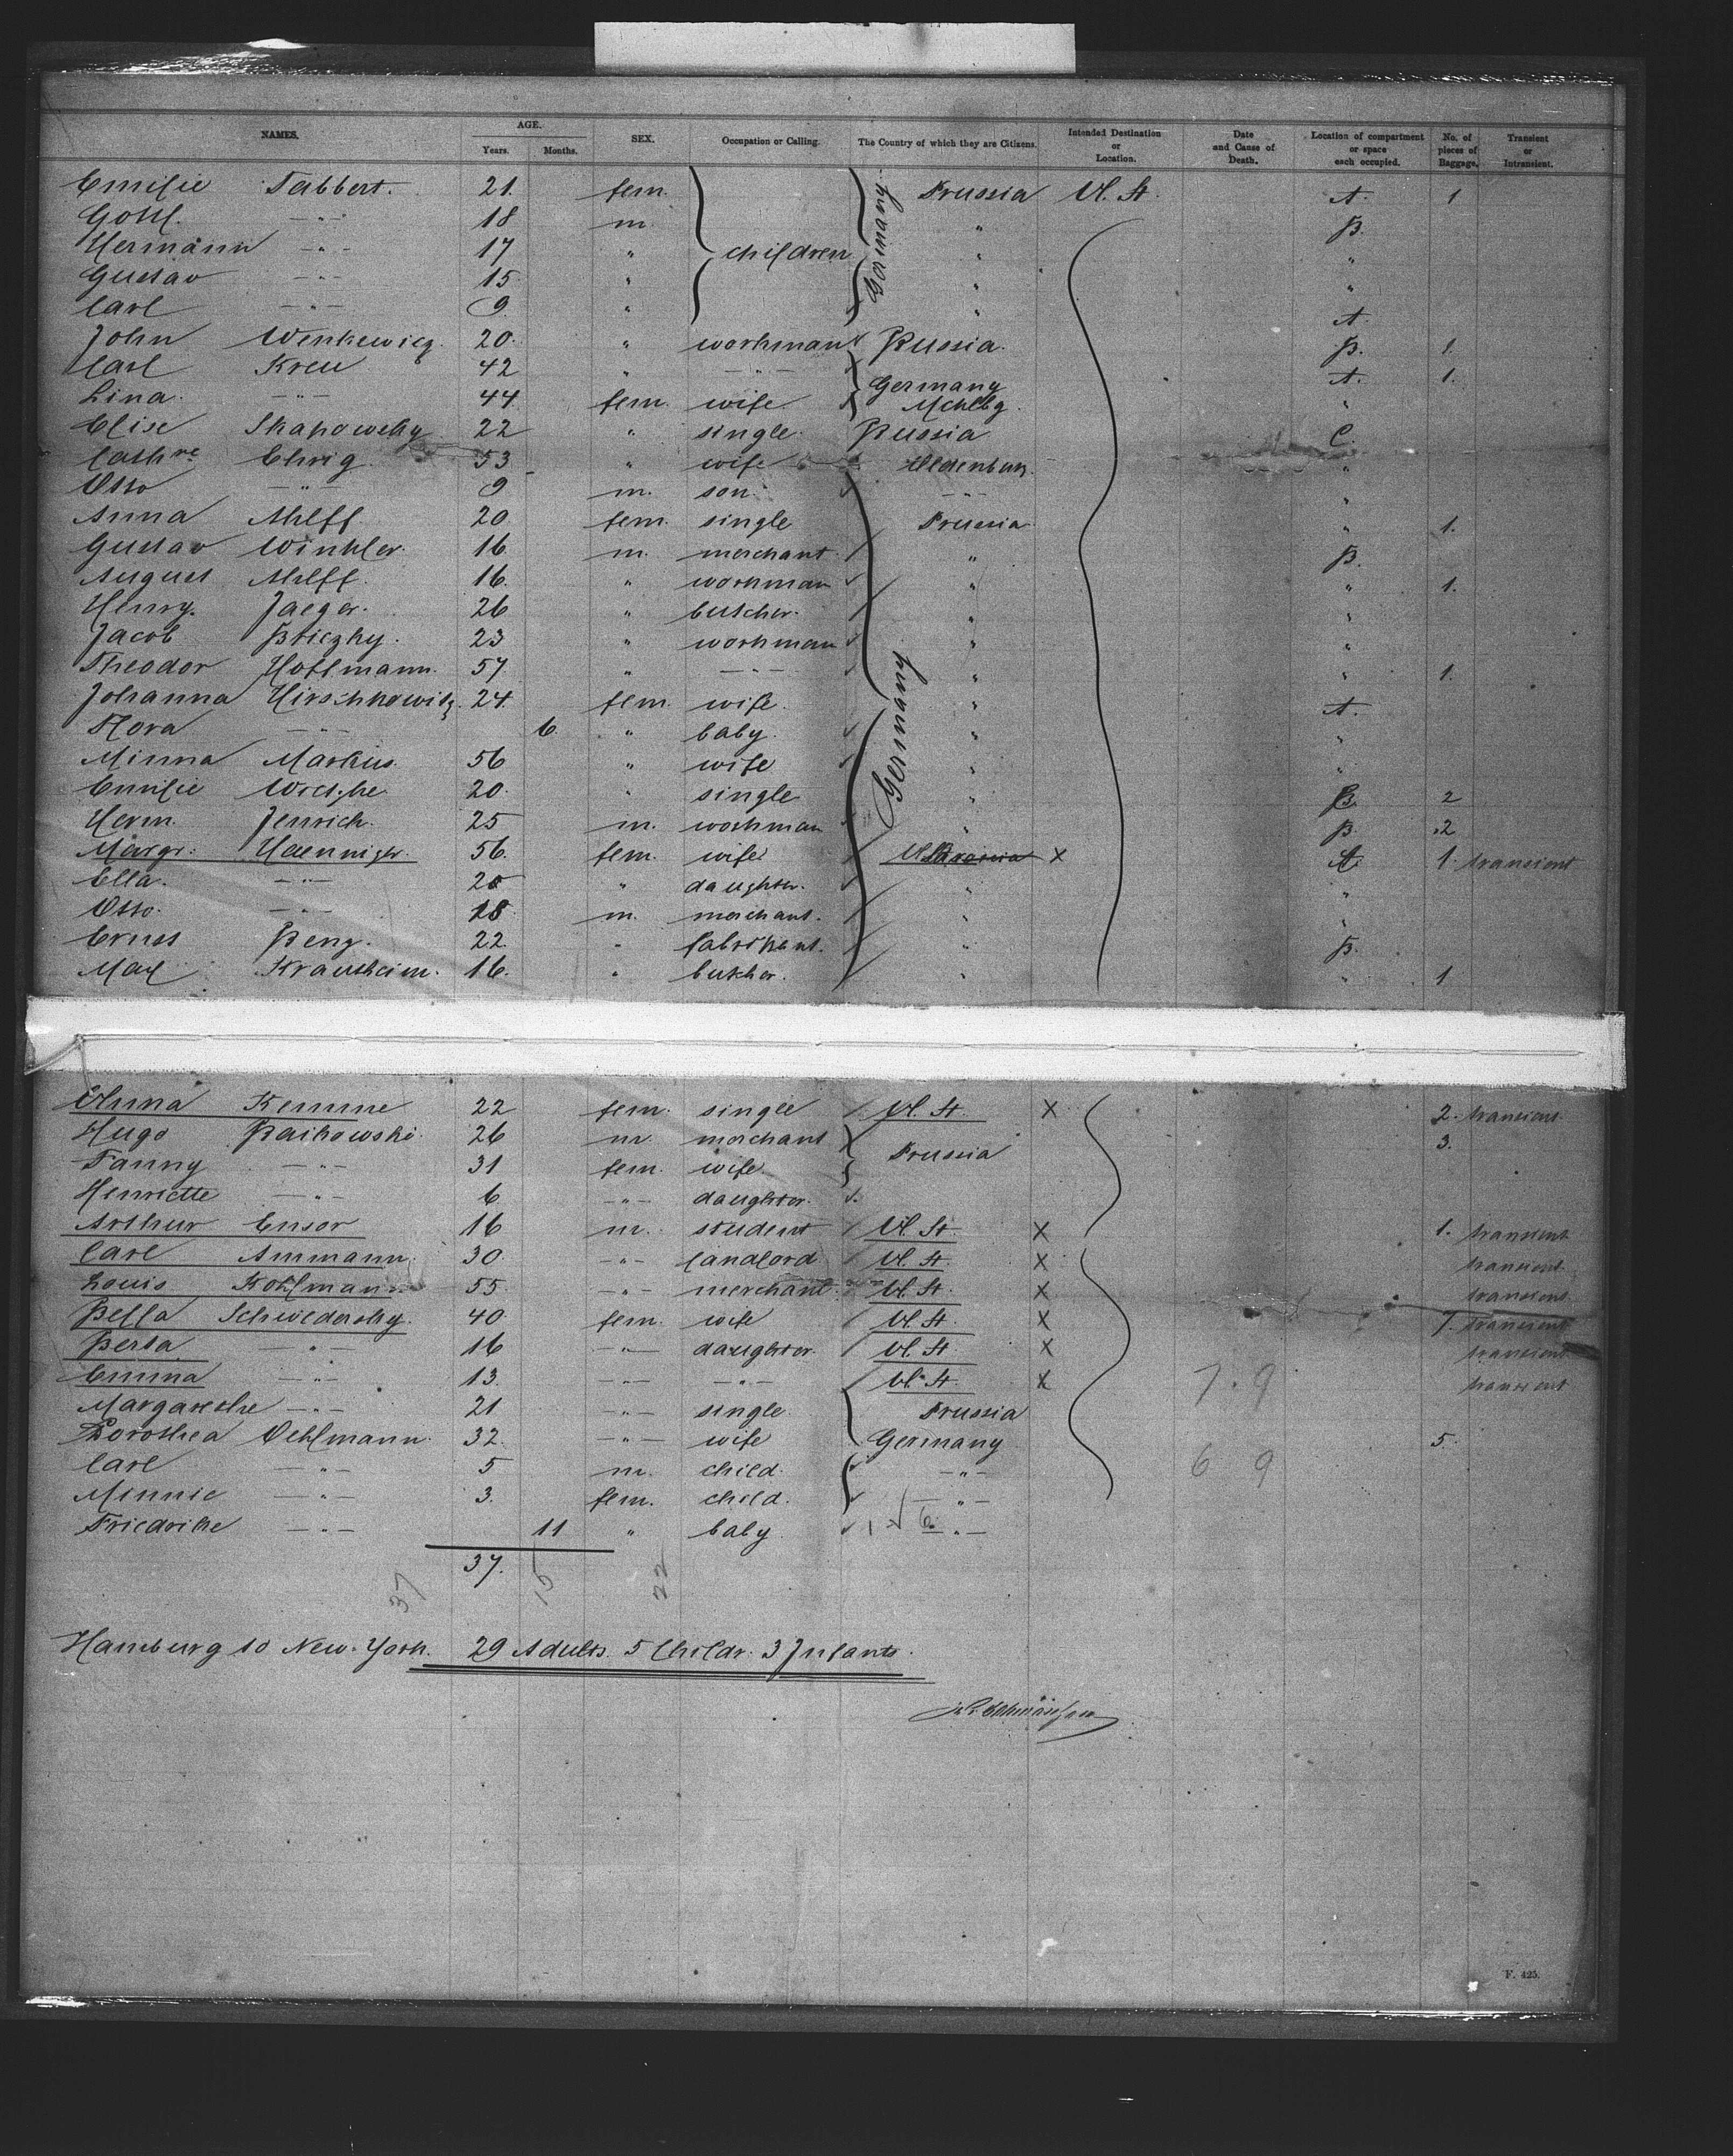 NAMES. AGE. SEX. Occupation or Calling. The Country of which they are Citizens. Intended Destination or Location. Date and Cause of Death. Location of compartment or space each occupied. No. of pieces of Baggage. Transient or Intransient.
Years. Months.
Emilie Tabbert. 21. fem. Prussia U. St. A. 1
Gottl. —"— 18 m. " B.
Hermann —"— 17 " children Germany " "
Gustav —"— 15 " " "
Carl —"— 9 " " A.
John 20. " workman Russia. B. 1.
Carl Kreu 42 " —"— Germany A. 1.
Lina. —"— 44 fem. wife Mcklbg. "
Elise Skapowsky 22 " single. Russia C.
Cathre Ehrig. 53 " wife Oldenburg. "
Otto —"— 9 m. son. —"— "
Anna 20. fem. single Prussia " 1.
Gustav Winkler. 16. m. merchant. " B.
August 16. " workman " " 1.
Henry. Jaeger. 26 " butcher. " "
Jacob 23 " workman " "
Theodor Hoffmann. 57. " —"— " " 1.
Johanna Hirschkowitz. 24. fem. wife. Germany " A.
Flora —"— 6. " baby. " "
Minna Markus. 56 " wife " "
Emilie 20. " single " B. 2
Herm. Jenrich. 25 m. workman " B. 2
Margr. Haenniger. 56. fem. wife U. St. Prussia X A. 1. transient
Ella. —"— 20 " daughter. " "
Otto. —"— 18 m. merchant. " "
Ernst Benz. 22. " fabrikant. " B.
Max Krausheim. 16. " butcher. " " 1
Anna Kemme 22 fem. single U. St. X 2. transient
Hugo Raikowski. 26 m. merchant Prussia 3.
Fanny —"— 31 fem. wife.
Henriette —"— 6 —"— daughter.
Arthur Ensor 16 m. student U. St. X 1. transient
Carl Ammann. 30. —"— landlord U. St. X transient
Louis Kohlmann 55 —"— merchant. U. St. X transient.
Bella Schwedersky. 40. fem. wife U. St. X 7. transient
Berta —"— 16 —"— daughter. U. St. X transient
Emma —"— 13. —"— —"— U. St. X 7. 9 transient
Margarethe —"— 21 —"— single Prussia
Dorothea Oehlmann. 32. —"— wife Germany 5.
Carl —"— 5 m. child. —"— 6 9
Minnie —"— 3. fem. child. —"—
Friedrike —"— 11 " baby —"—
37.
37 15 22
Hamburg to New-York. 29 Adults. 5 Childr. 3 Infants.
F. 425.